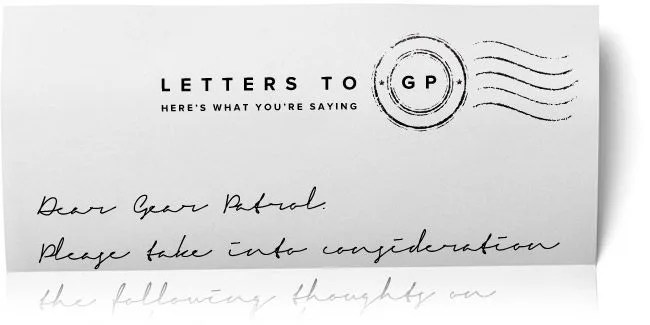 LETTERS TO GP
HERE'S WHAT YOU'RE SAYING
Dear Gear Patrol.
Please take into consideration
the following thoughts on